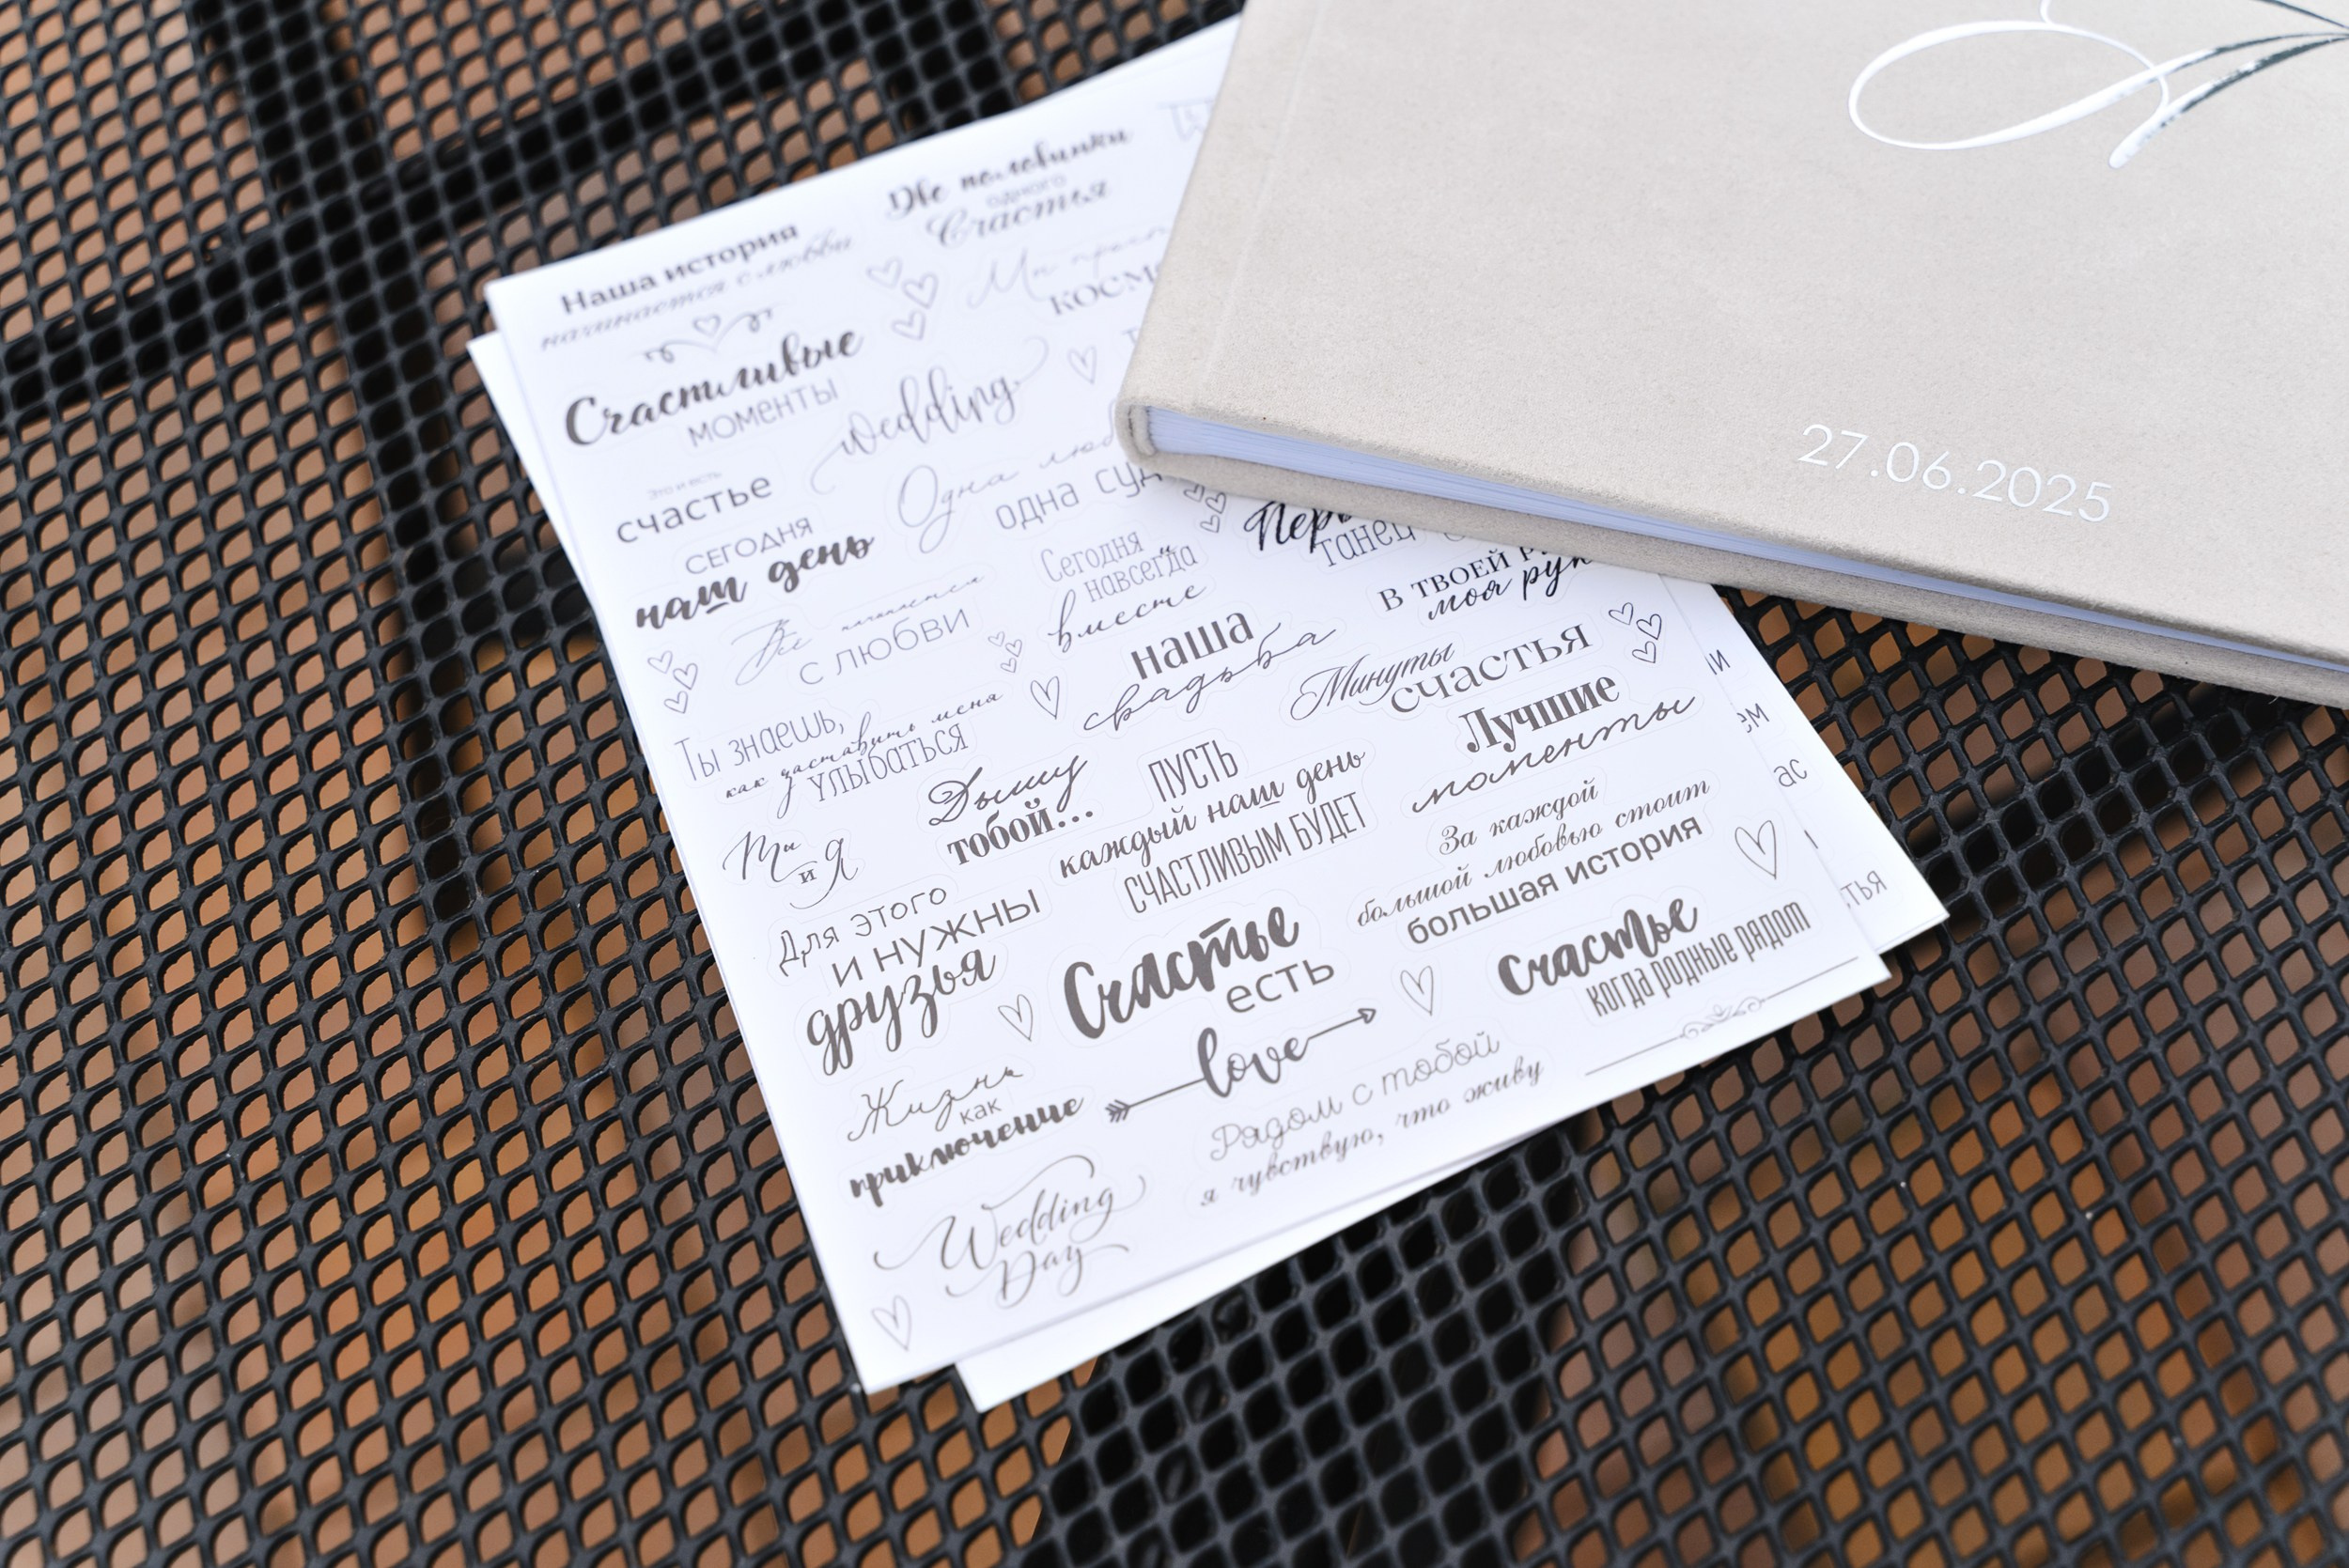 Две половинки
одного
Счастья
Наша история
начинается с любви
Счастливые
моменты
wedding
Это и есть
счастье
Одна
одна
СЕГОДНЯ
наш день
Сегодня
навсегда
вместе
танец
В ТВОЕЙ
моя
Всё начинается
с любви
наша
свадьба
Минуты
счастья
Ты знаешь,
как заставить меня
улыбаться
Лучшие
моменты
Дышу
тобой...
ПУСТЬ
каждый наш день
СЧАСТЛИВЫМ БУДЕТ
Ты
и Я
За каждой
большой любовью стоит
большая история
Для этого
и нужны
друзья
Счастье
есть
счастье
когда родные рядом
love
Жизнь
как
приключение
Рядом с тобой
я чувствую, что живу
Wedding
Day
27.06.2025